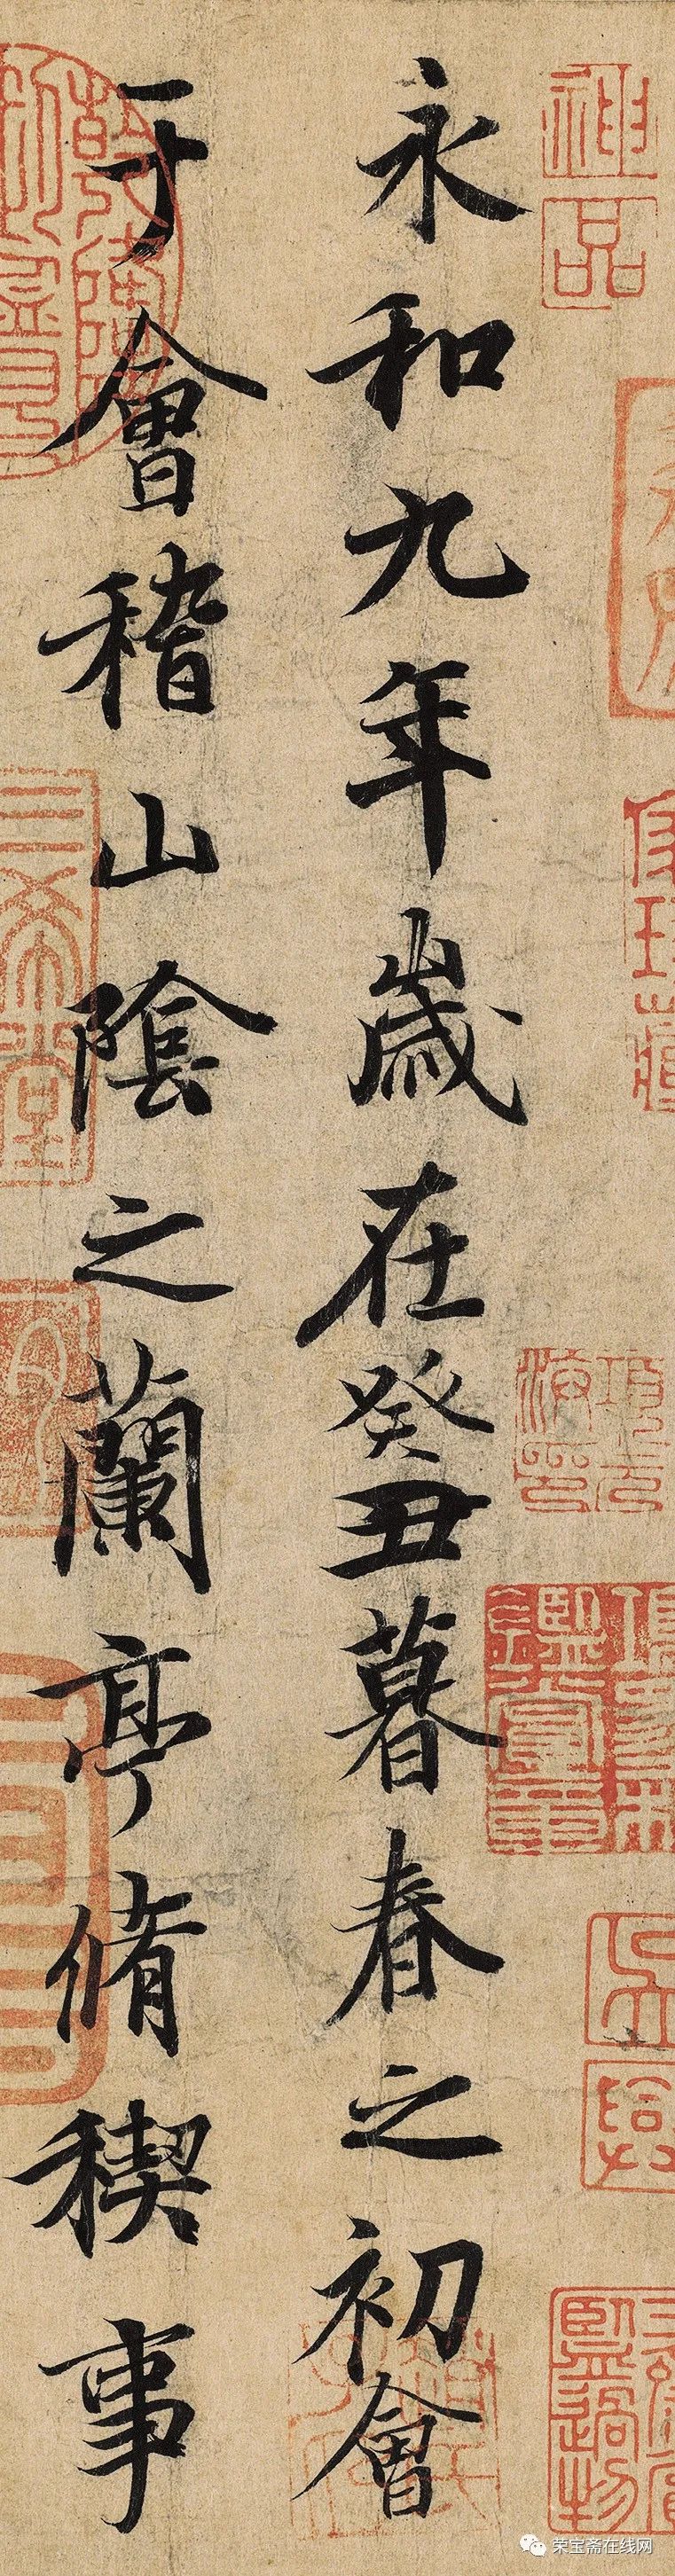 永和九年歲在癸丑暮春之初會
于會稽山陰之蘭亭脩稧事
神品
荣宝斋在线网